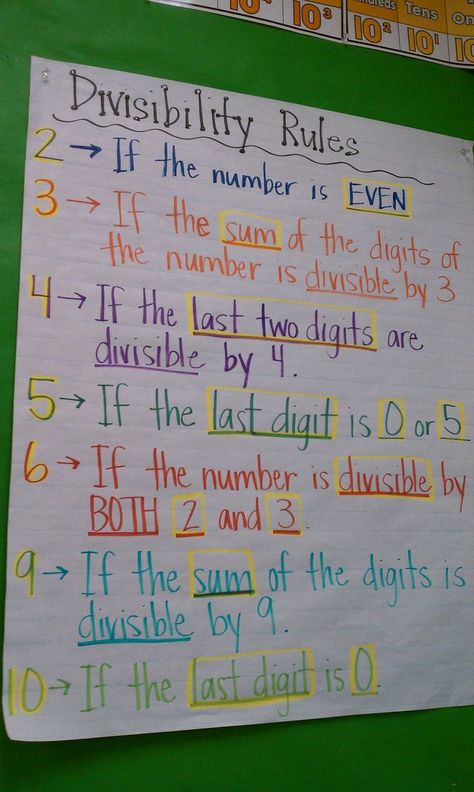 10³
10² 10¹
Tens
Divisibility Rules
2 → If the number is EVEN
3 → If the sum of the digits of
the number is divisible by 3
4 → If the last two digits are
divisible by 4.
5 → If the last digit is 0 or 5
6 → If the number is divisible by
BOTH 2 and 3.
9 → If the sum of the digits is
divisible by 9.
10 → If the last digit is 0.